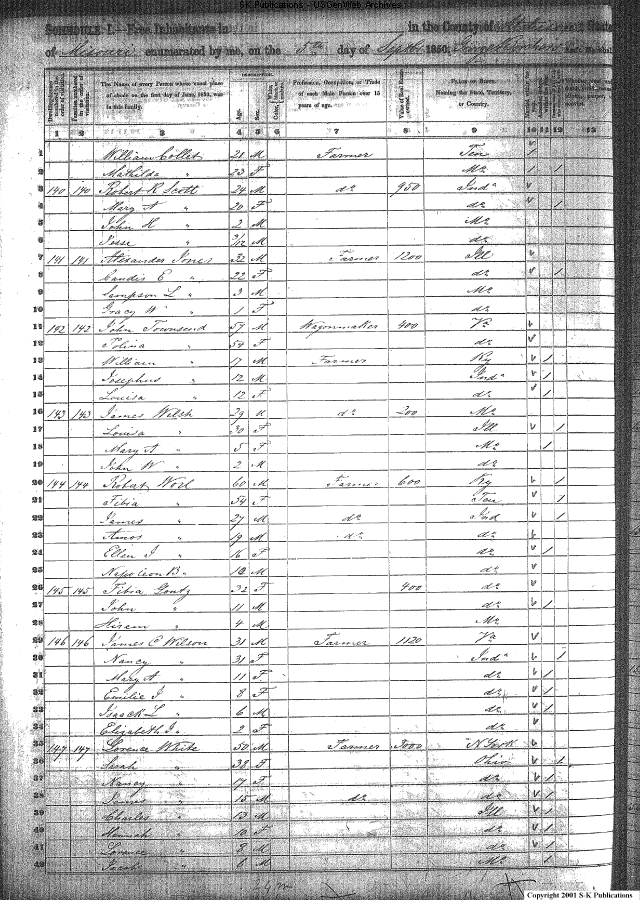 S-K Publications - USGenWeb Archives
SCHEDULE I.—Free Inhabitants in in the County of State
of Missouri enumerated by me, on the 5th day of Septr 1850.
DESCRIPTION.
Dwelling-houses numbered in the order of visitation. Families numbered in the order of visitation. The Name of every Person whose usual place of abode on the first day of June, 1850, was in this family. Age. Sex. Color Profession, Occupation, or Trade of each Male Person over 15 years of age. Value of Real Estate owned. PLACE OF BIRTH. Naming the State, Territory, or Country.
1 2 3 4 5 6 7 8 9 10 11 12 13
1 William Collet 21 M Farmer Ten 1
2 Mathilda " 23 F Mo 1 1
3 140 140 Robert R Scott 24 M do 950 Inda
4 Mary A " 20 F do 1
5 John H " 2 M Mo
6 Jesse " 2/12 M do
7 141 141 Alexander Jones 32 M Farmer 1200 Ill
8 Candis E " 22 F do 1
9 Sampson L " 3 M Mo
10 Gracy W " 1 F do
11 142 142 John Townsend 59 M Wagonmaker 400 Va
12 Polina " 54 F do
13 William " 17 M Farmer Ky 1
14 Josephus " 12 M Inda 1
15 Louisa " 12 F do 1
16 143 143 James Welsh 29 M do 200 Mo
17 Louisa " 30 F Ill 1
18 Mary A " 5 F Mo 1
19 John W " 2 M do
20 144 144 Robert Woel 60 M Farmer 600 Ky 1
21 Fibia " 54 F Ten 1
22 James " 27 M do Ind 1
23 Amos " 19 M do do
24 Ellen J " 16 F do 1
25 Napoleon B " 12 M do
26 145 145 Fibia Gontz 32 F 400 do
27 John " 11 M do 1
28 Hiram " 4 M Mo
29 146 146 James C Wilson 31 M Farmer 1120 Va
30 Nancy " 31 F Inda 1
31 Mary A " 11 F do 1
32 Emilie J " 8 F do 1
33 Isaack L " 6 M do 1
34 Elizabeth J " 2 F do
35 147 147 Lorence White 50 M Farmer 3000 N York
36 Sarah " 38 F Ohio 1
37 Nancy " 17 F do 1
38 James " 15 M do do 1
39 Charles " 13 M Ill 1
40 Hannah " 10 F do 1
41 Lorence " 8 M do 1
42 Jacob " 6 M Mo 1
Copyright 2001 S-K Publications